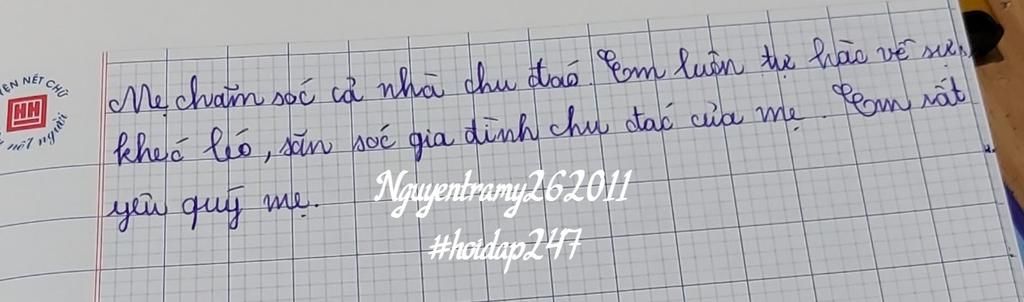 Mẹ chăm sóc cả nhà chu đáo. Em luôn tự hào về sự
khéo léo, săn sóc gia đình chu đáo của mẹ. Em rất
yêu quý mẹ.
Nguyentramy262011
#hoidap247
NÉT CHỮ
HH
nết người